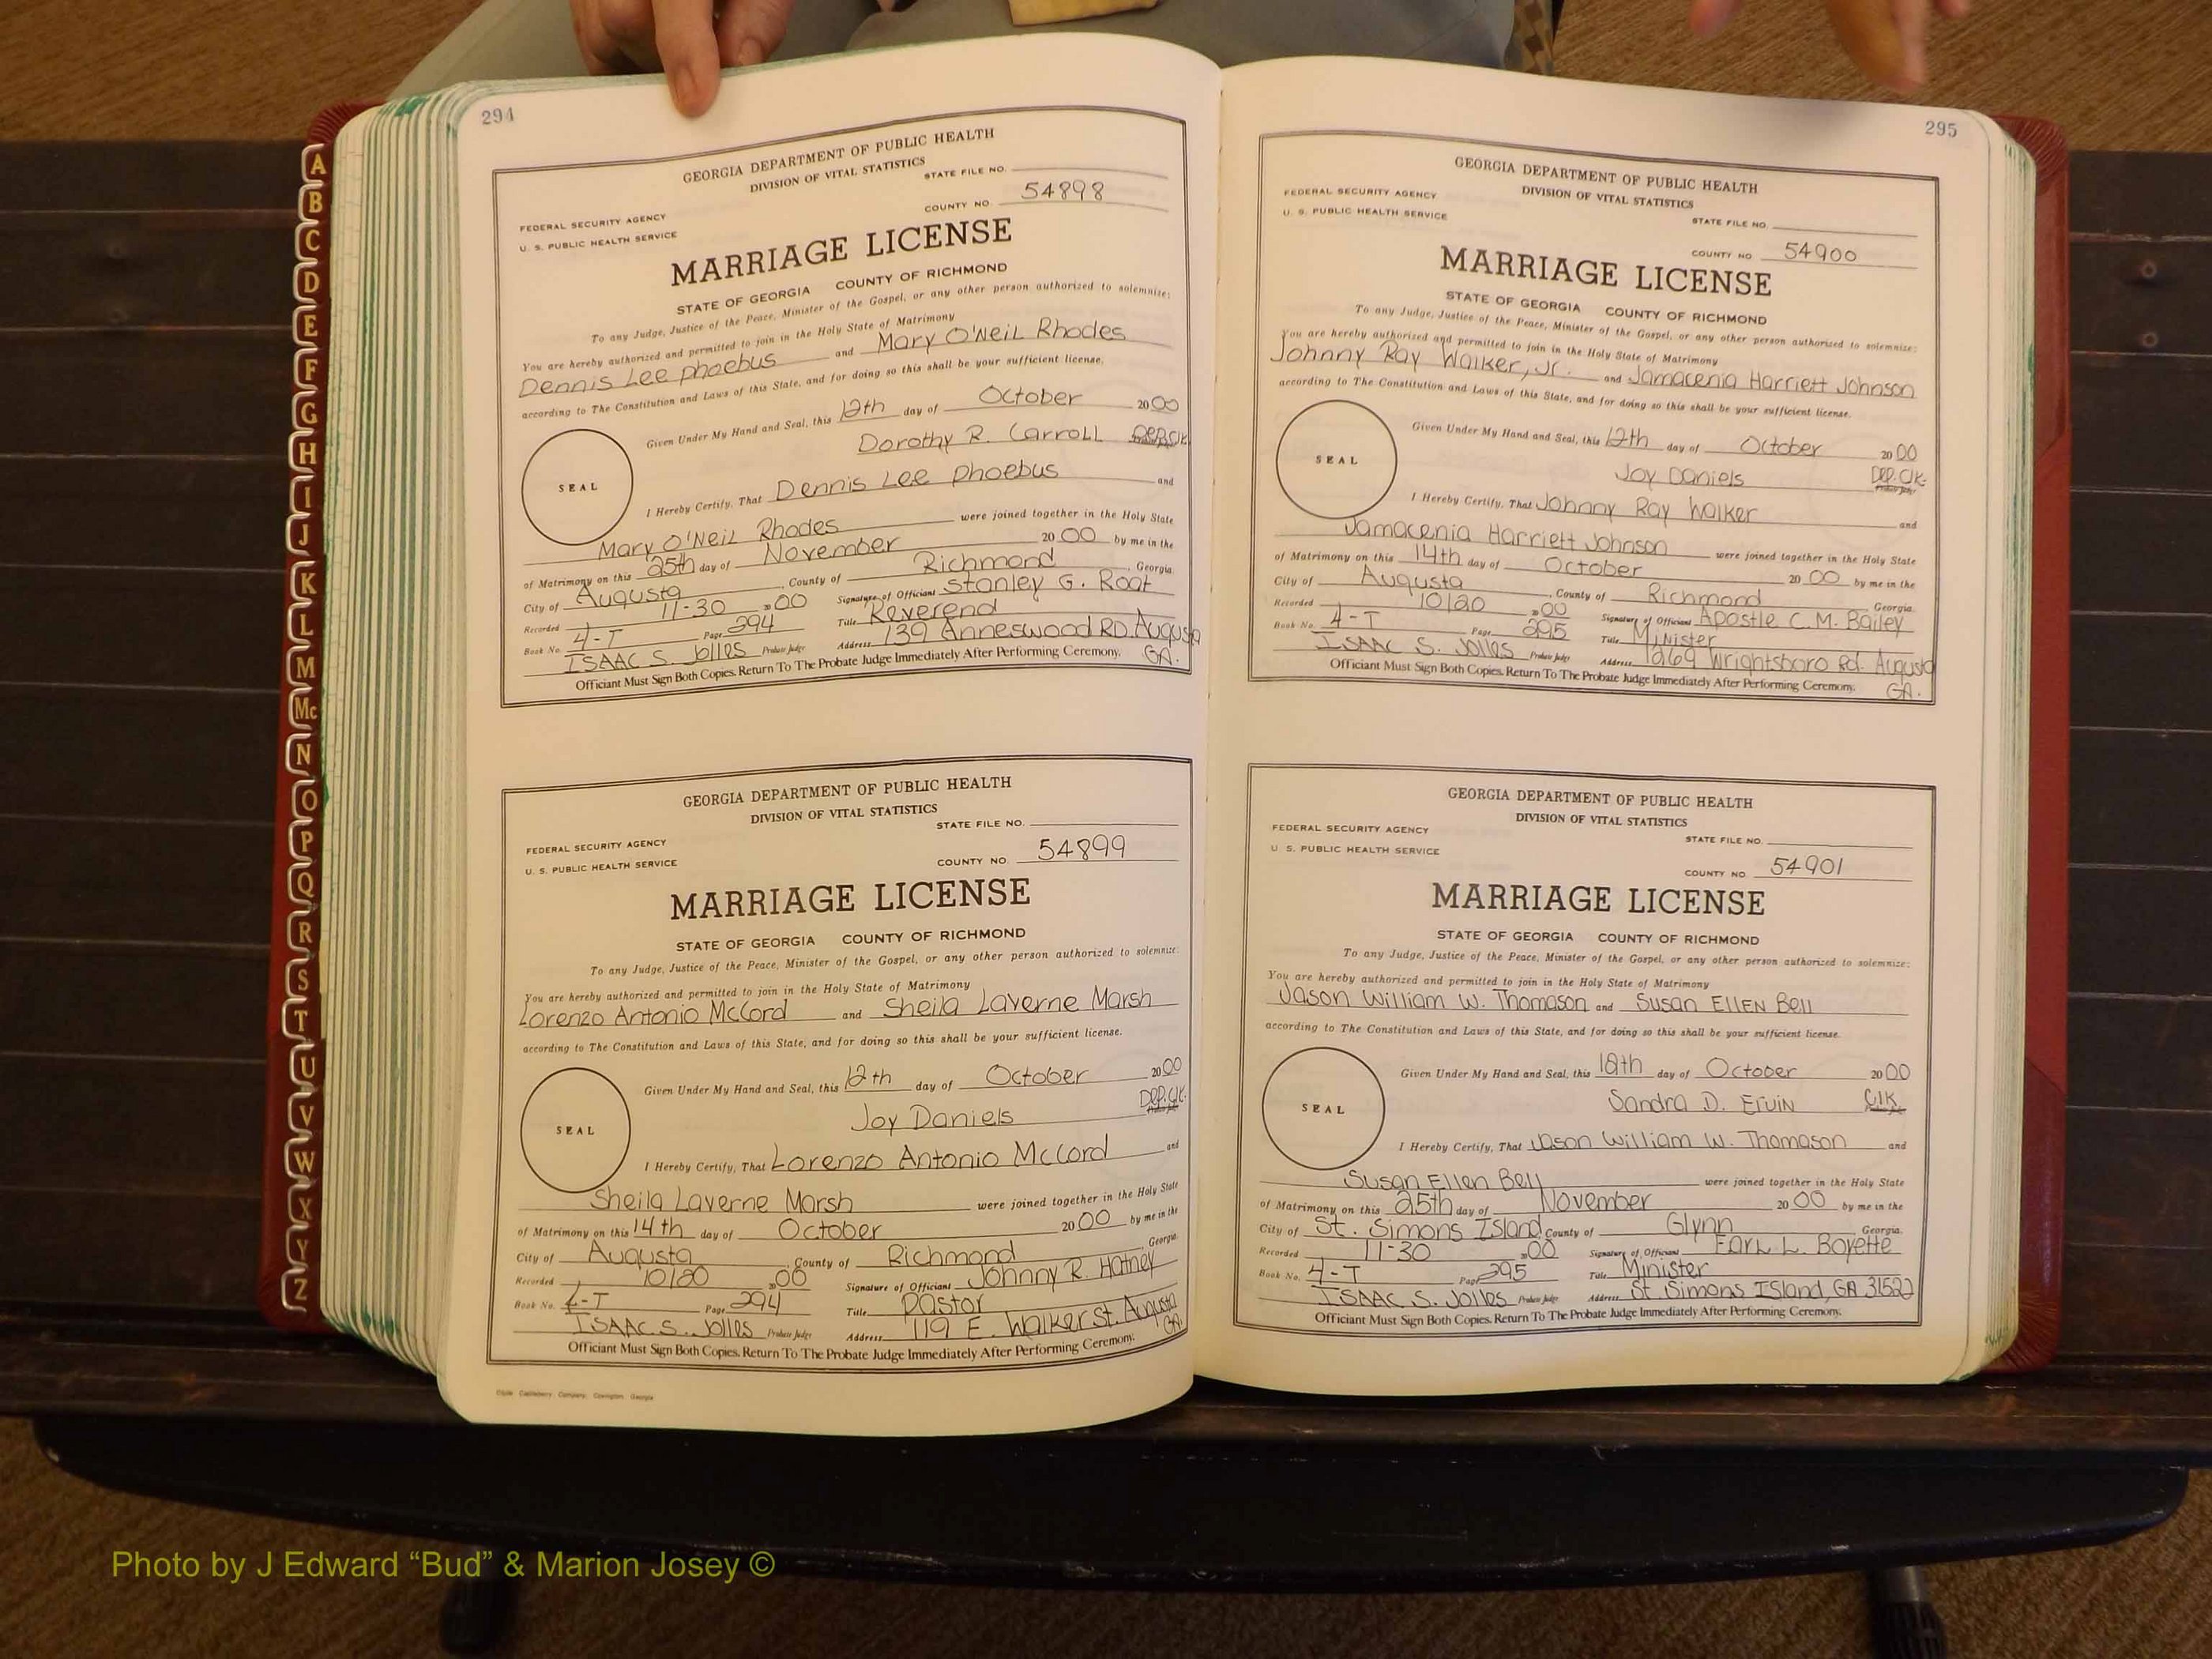 A
B
C
D
E
F
G
H
I
J
K
L
M
Mc
N
O
P
Q
R
S
T
U
V
W
X
Y
Z
294
GEORGIA DEPARTMENT OF PUBLIC HEALTH
DIVISION OF VITAL STATISTICS
STATE FILE NO.
FEDERAL SECURITY AGENCY
COUNTY NO. 54898
U. S. PUBLIC HEALTH SERVICE
MARRIAGE LICENSE
STATE OF GEORGIA COUNTY OF RICHMOND
To any Judge, Justice of the Peace, Minister of the Gospel, or any other person authorized to solemnize:
You are hereby authorized and permitted to join in the Holy State of Matrimony
Dennis Lee phoebus and Mary O'Neil Rhodes
according to The Constitution and Laws of this State, and for doing so this shall be your sufficient license.
Given Under My Hand and Seal, this 12th day of October 2000
Dorothy R. Carroll Dep. Clk.
SEAL
I Hereby Certify, That Dennis Lee phoebus and
Mary O'Neil Rhodes were joined together in the Holy State
of Matrimony on this 25th day of November 2000 by me in the
City of Augusta, County of Richmond, Georgia.
Recorded 11-30 2000 Signature of Officiant Stanley G. Root
Book No. 4-T Page 294 Title Reverend
ISAAC S. Jolles Probate Judge Address 139 Anneswood RD. Augusta GA.
Officiant Must Sign Both Copies. Return To The Probate Judge Immediately After Performing Ceremony.
GEORGIA DEPARTMENT OF PUBLIC HEALTH
DIVISION OF VITAL STATISTICS
STATE FILE NO.
FEDERAL SECURITY AGENCY
COUNTY NO. 54899
U. S. PUBLIC HEALTH SERVICE
MARRIAGE LICENSE
STATE OF GEORGIA COUNTY OF RICHMOND
To any Judge, Justice of the Peace, Minister of the Gospel, or any other person authorized to solemnize:
You are hereby authorized and permitted to join in the Holy State of Matrimony
Lorenzo Antonio McCord and Sheila Laverne Marsh
according to The Constitution and Laws of this State, and for doing so this shall be your sufficient license.
Given Under My Hand and Seal, this 12th day of October 2000
Joy Daniels Dep. Clk.
SEAL
I Hereby Certify, That Lorenzo Antonio McCord and
Sheila Laverne Marsh were joined together in the Holy State
of Matrimony on this 14th day of October 2000 by me in the
City of Augusta, County of Richmond, Georgia.
Recorded 10/20 2000 Signature of Officiant Johnny R. Hatney
Book No. 4-T Page 294 Title Pastor
ISAAC S. Jolles Probate Judge Address 119 E. Walker St. Augusta GA.
Officiant Must Sign Both Copies. Return To The Probate Judge Immediately After Performing Ceremony.
Company, Covington, Georgia
295
GEORGIA DEPARTMENT OF PUBLIC HEALTH
DIVISION OF VITAL STATISTICS
FEDERAL SECURITY AGENCY
U. S. PUBLIC HEALTH SERVICE
STATE FILE NO.
COUNTY NO 54900
MARRIAGE LICENSE
STATE OF GEORGIA COUNTY OF RICHMOND
To any Judge, Justice of the Peace, Minister of the Gospel, or any other person authorized to solemnize:
You are hereby authorized and permitted to join in the Holy State of Matrimony
Johnny Ray Walker, Jr. and Jamacenia Harriett Johnson
according to The Constitution and Laws of this State, and for doing so this shall be your sufficient license.
Given Under My Hand and Seal, this 12th day of October 2000
Joy Daniels Dep. Clk.
SEAL
I Hereby Certify, That Johnny Ray Walker and
Jamacenia Harriett Johnson were joined together in the Holy State
of Matrimony on this 14th day of October 2000 by me in the
City of Augusta, County of Richmond Georgia.
Recorded 10/20 2000 Signature of Officiant Apostle C.M. Bailey
Book No. 4-T Page 295 Title Minister
ISAAC S. Jolles Probate Judge Address 1269 Wrightsboro Rd. Augusta GA.
Officiant Must Sign Both Copies. Return To The Probate Judge Immediately After Performing Ceremony.
GEORGIA DEPARTMENT OF PUBLIC HEALTH
DIVISION OF VITAL STATISTICS
FEDERAL SECURITY AGENCY
STATE FILE NO.
U. S. PUBLIC HEALTH SERVICE
COUNTY NO. 54901
MARRIAGE LICENSE
STATE OF GEORGIA COUNTY OF RICHMOND
To any Judge, Justice of the Peace, Minister of the Gospel, or any other person authorized to solemnize:
You are hereby authorized and permitted to join in the Holy State of Matrimony
Jason William W. Thomason and Susan Ellen Bell
according to The Constitution and Laws of this State, and for doing so this shall be your sufficient license.
Given Under My Hand and Seal, this 12th day of October 2000
Sandra D. Ervin Clk.
SEAL
I Hereby Certify, That Jason William W. Thomason and
Susan Ellen Bell were joined together in the Holy State
of Matrimony on this 25th day of November 2000 by me in the
City of St. Simons Island, County of Glynn Georgia.
Recorded 11-30 2000 Signature of Officiant Earl L. Boyette
Book No. 4-T Page 295 Title Minister
ISAAC S. Jolles Probate Judge Address St. Simons Island, GA 31522
Officiant Must Sign Both Copies. Return To The Probate Judge Immediately After Performing Ceremony.
Photo by J Edward “Bud” & Marion Josey ©